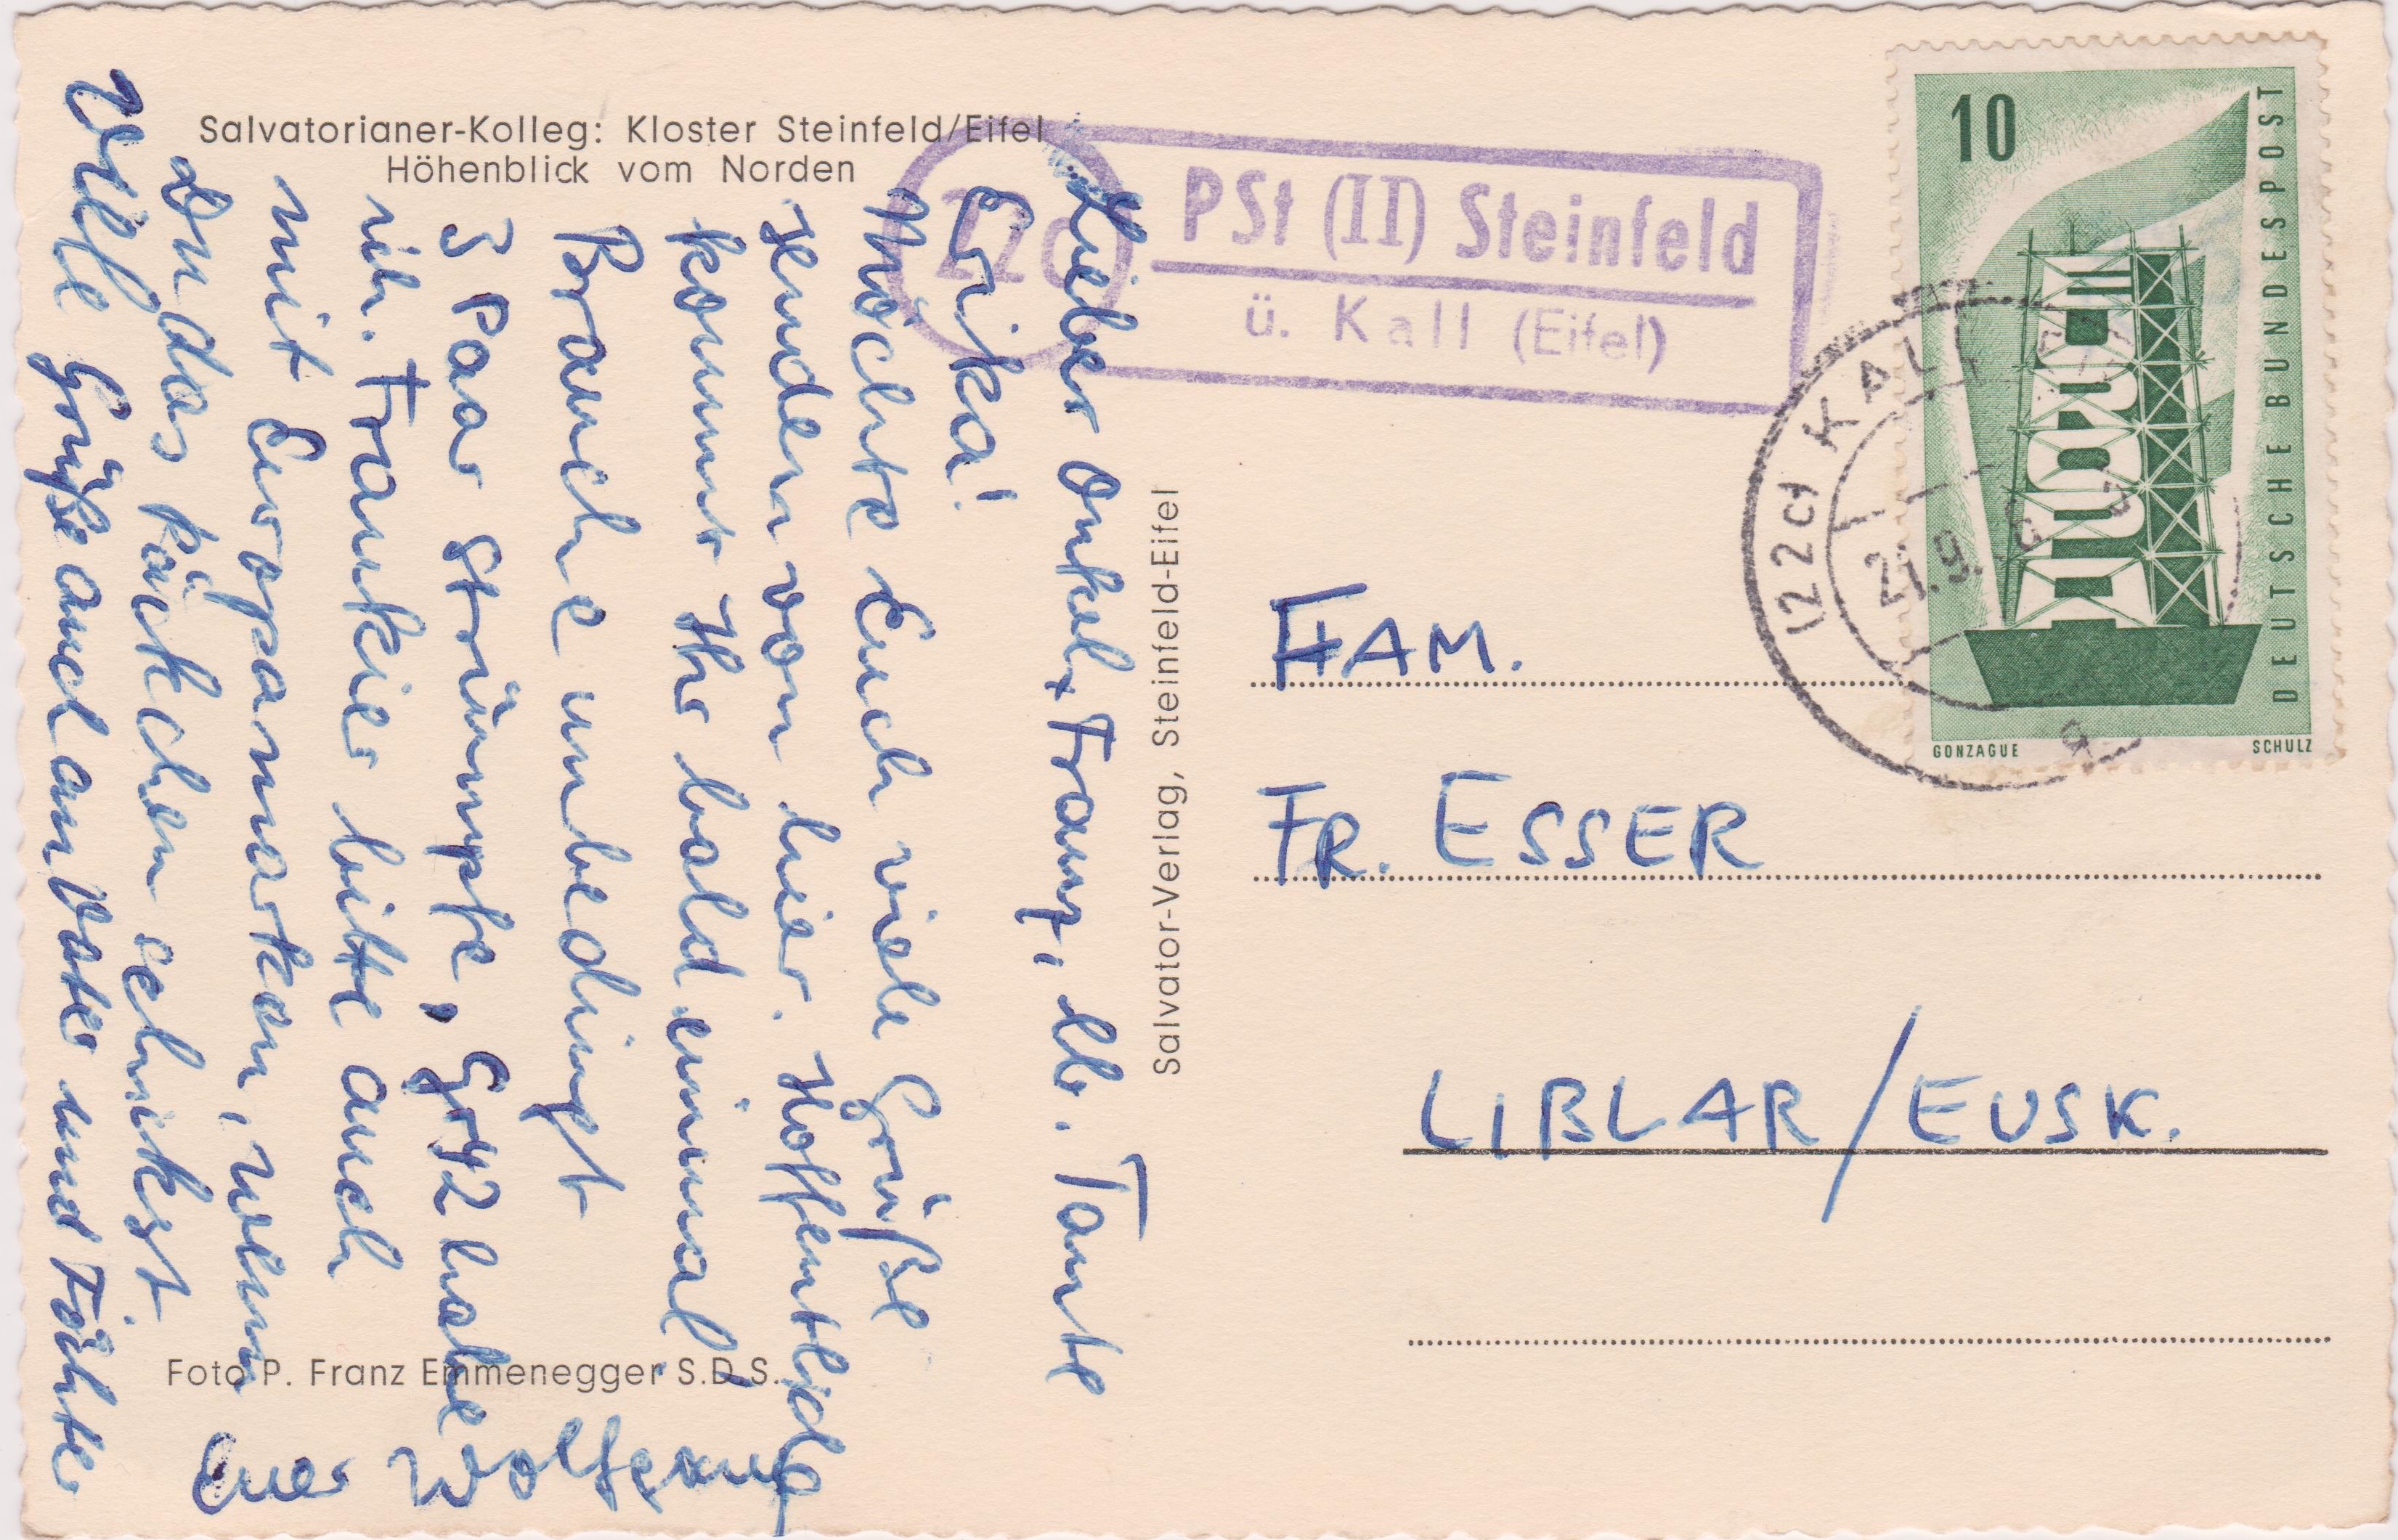 Salvatorianer-Kolleg: Kloster Steinfeld/Eifel
Höhenblick vom Norden
Lieber Onkel Franz, lb. Tante
Erika!
Möchte Euch viele Grüße
senden von hier. Hoffentlich
kommt Ihr bald einmal.
Brauche unbedingt
3 Paar Strümpfe, Gr42 habe
ich. Frankier bitte auch
mit Europamarken, wenn
Du das Päckchen schickst.
Viele Grüße auch an Vater und
Euer Wolfgang
Foto P. Franz Emmenegger S.D.S.
Salvator-Verlag, Steinfeld-Eifel
22c
PSt (II) Steinfeld
ü. Kall (Eifel)
10
DEUTSCHE BUNDESPOST
EUROPA
GONZAGUE
SCHULZ
(22c) KALL
a
FAM.
FR. ESSER
LIBLAR/EUSK.